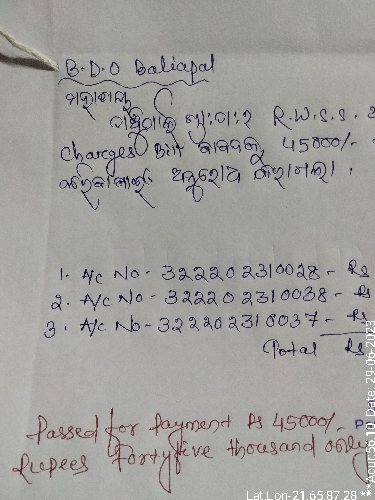 B.D.O Baliapal
ମହାଶୟ
R.W.S.S.
Charges Bill ବାବଦକୁ 45000/-
ଅନୁରୋଧ
1. A/c No - 322202310028 - Rs
2. A/c No - 322202310038 - Rs
3. A/c No - 322202310037 - Rs
Total Rs
Passed for Payment Rs 45000/-
Rupees Fortyfive thousand only
Lat Lon-21.65 87.28 **
**Acur:56.10 Date: 29-06-2023